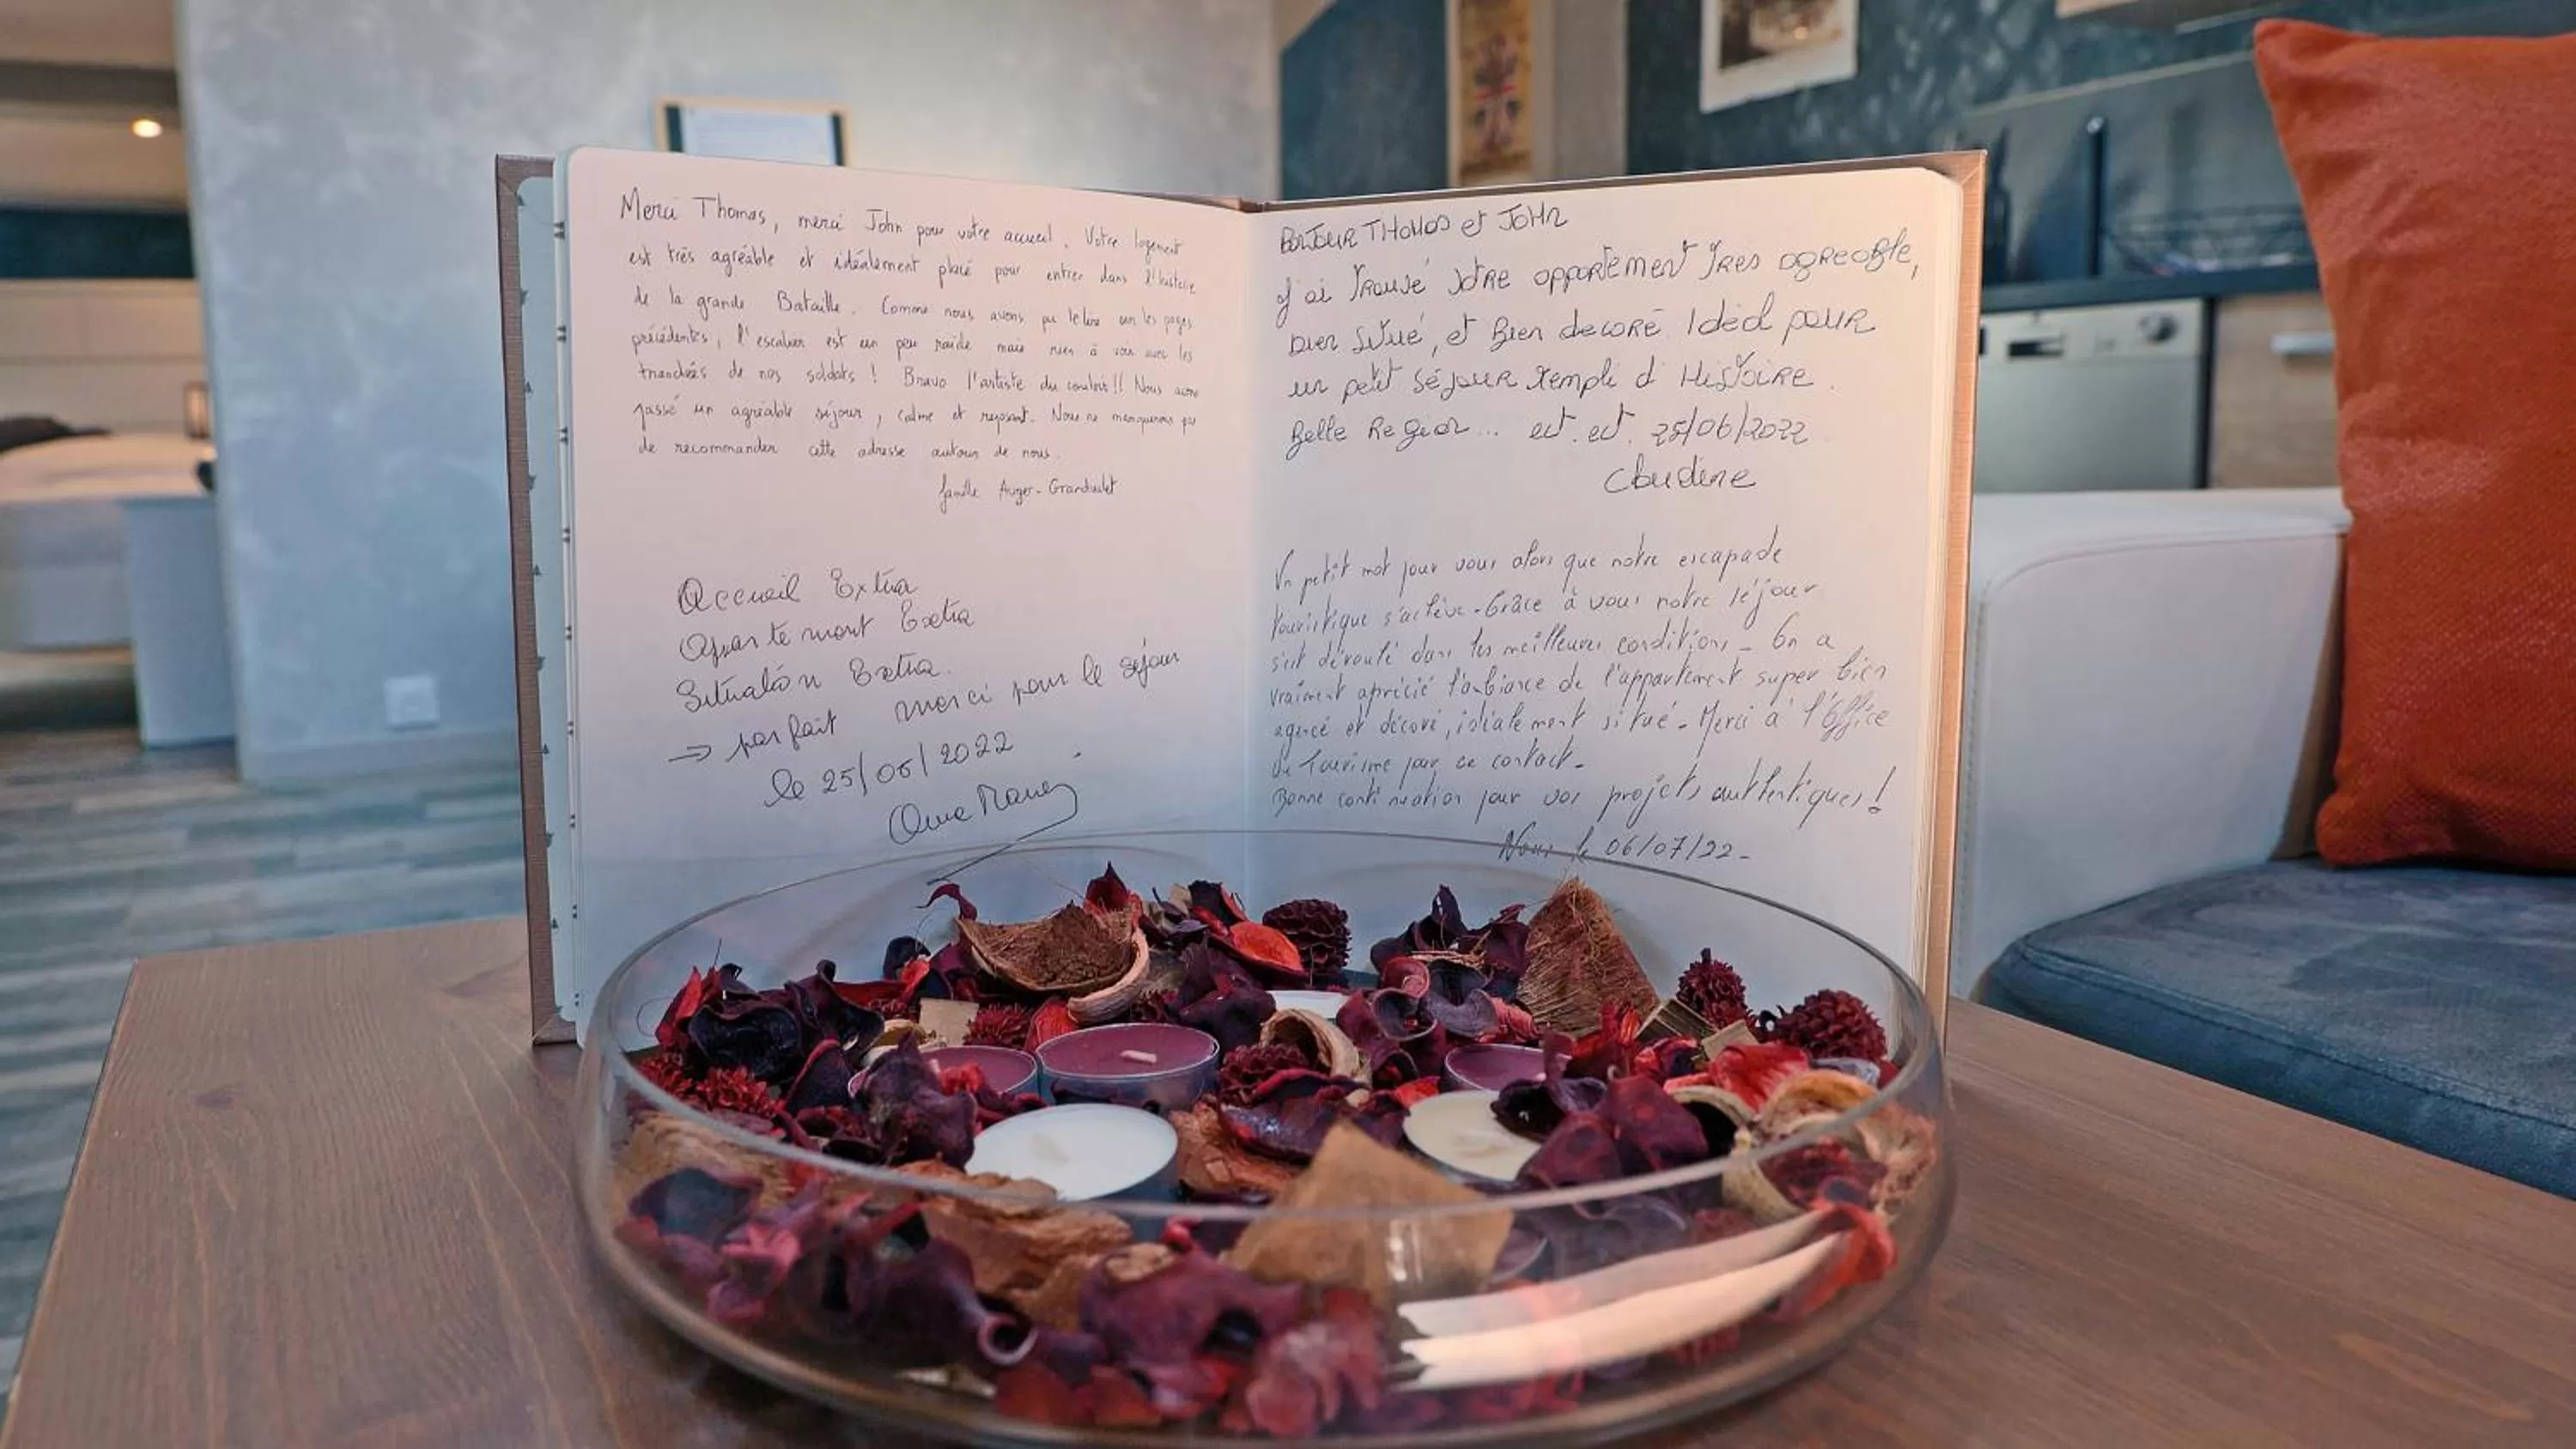 Merci Thomas, merci John pour votre accueil. Votre logement
est très agréable et idéalement placé pour entrer dans l'histoire
de la grande Bataille. Comme nous avons pu le lire sur les pages
précédentes, l'escalier est un peu raide mais rien à voir avec les
tranchées de nos soldats ! Bravo l'artiste du couloir !! Nous avons
passé un agréable séjour, calme et reposant. Nous ne manquerons pas
de recommander cette adresse autour de nous.
famille Auger-
Accueil Extra
Appartement Extra
Situation Extra.
→ parfait merci pour le séjour
le 25/06/2022
BONJOUR THOMAS et JOHN
J'ai trouvé votre appartement tres agreable,
bien situé, et bien decoré. Ideal pour
un petit séjour rempli d'Histoire.
Belle Region... ect. ect. 25/06/2022
Claudine
Un petit mot pour vous alors que notre escapade
touristique s'achève - Grâce à vous notre séjour
s'est déroulé dans les meilleures conditions - On a
vraiment aprécié l'ambiance de l'appartement super bien
agencé et décoré, idéalement situé - Merci à l'Office
de Tourisme pour ce contact -
Bonne continuation pour vos projets authentiques !
le 06/07/22 -